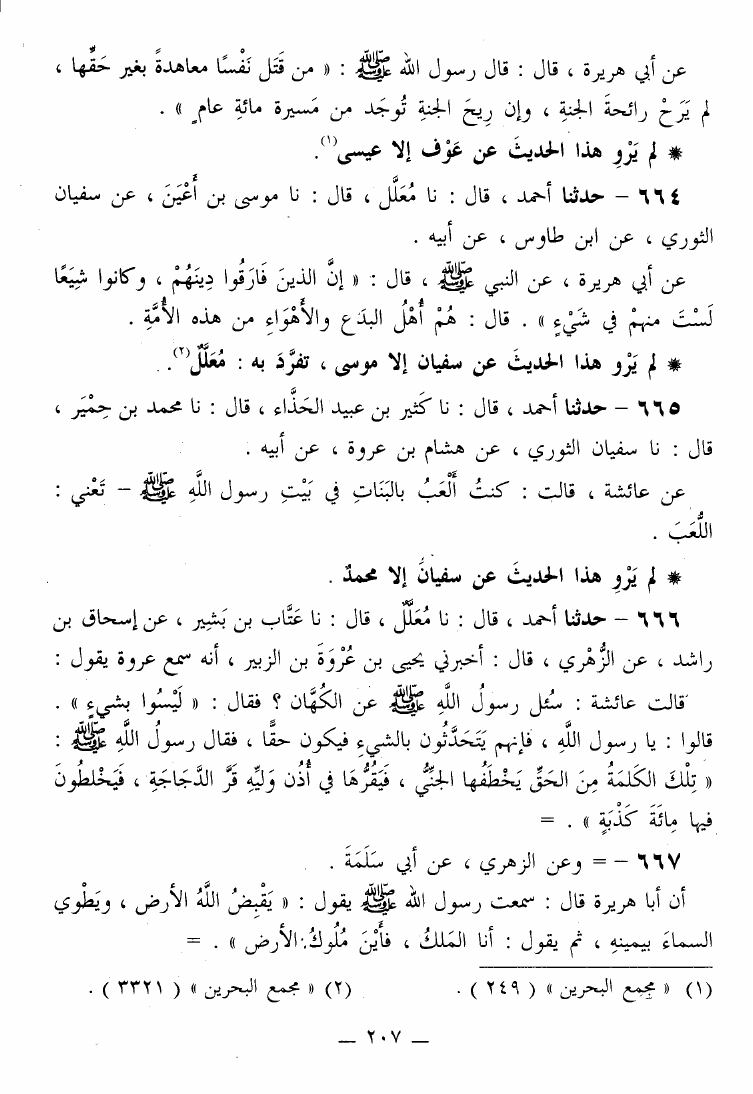 عن أبي هريرة ، قال : قال رسول الله ﷺ : « من قَتَل نَفْسًا معاهدةً بغير حَقِّها ،
لم يَرَحْ رائحةَ الجنةِ ، وإن رِيحَ الجنةِ تُوجَد من مَسيرة مائةِ عامٍ » .
* لم يَرْوِ هذا الحديثَ عن عَوْف إلا عيسى(١).
٦٦٤ – حدثنا أحمد ، قال : نا مُعَلَّل ، قال : نا موسى بن أَعْيَنَ ، عن سفيان
الثوري ، عن ابن طاوس ، عن أبيه .
عن أبي هريرة ، عن النبي ﷺ ، قال : « إنَّ الذينَ فَارَقُوا دِينَهُمْ ، وكانوا شِيَعًا
لَسْتَ منهمْ في شَيْءٍ » . قال : هُمْ أَهْلُ البدَع والأَهْوَاءِ من هذه الأُمَّةِ .
* لم يَرْوِ هذا الحديثَ عن سفيان إلا موسى ، تفرَّدَ به : مُعَلَّلٌ(٢).
٦٦٥ – حدثنا أحمد ، قال : نا كَثير بن عبيد الحَذَّاء ، قال : نا محمد بن حِمْيَر ،
قال : نا سفيان الثوري ، عن هشام بن عروة ، عن أبيه .
عن عائشة ، قالت : كنتُ أَلْعَبُ بالبَنَاتِ في بَيْتِ رسول اللَّهِ ﷺ – تَعْني :
اللُّعَبَ .
* لم يَرْوِ هذا الحديثَ عن سفيانَ إلا محمدٌ .
٦٦٦ – حدثنا أحمد ، قال : نا مُعَلَّل ، قال : نا عَتَّاب بن بَشير ، عن إسحاق بن
راشد ، عن الزُّهْري ، قال : أخبرني يحيى بن عُرْوَةَ بن الزبير ، أنه سمع عروة يقول :
قالت عائشة : سُئل رسولُ اللَّهِ ﷺ عن الكُهَّان ؟ فقال : « لَيْسُوا بشيءٍ » .
قالوا : يا رسول اللَّهِ ، فإنهم يَتَحَدَّثُون بالشيءِ فيكون حقًّا ، فقال رسولُ اللَّهِ ﷺ :
« تِلْكَ الكَلمَةُ مِنَ الحَقِّ يَخْطَفُها الجنِّيُّ ، فَيَقُرُّهَا في أُذُن وَليِّه قَرَّ الدَّجَاجَةِ ، فَيَخْلطُونَ
فيها مِائَةَ كَذْبَةٍ » . =
٦٦٧ – = وعن الزهري ، عن أبي سَلَمَةَ .
أن أبا هريرة قال : سمعت رسول الله ﷺ يقول : « يَقْبِضُ اللَّهُ الأرض ، ويَطْوي
السماءَ بيمينهِ ، ثم يقول : أنا المَلكُ ، فأَيْنَ مُلُوكُ الأرض » . =
(١) « مجمع البحرين » ( ٢٤٩ ) . (٢) « مجمع البحرين » ( ٣٣٢١ ) .
— ٢٠٧ —